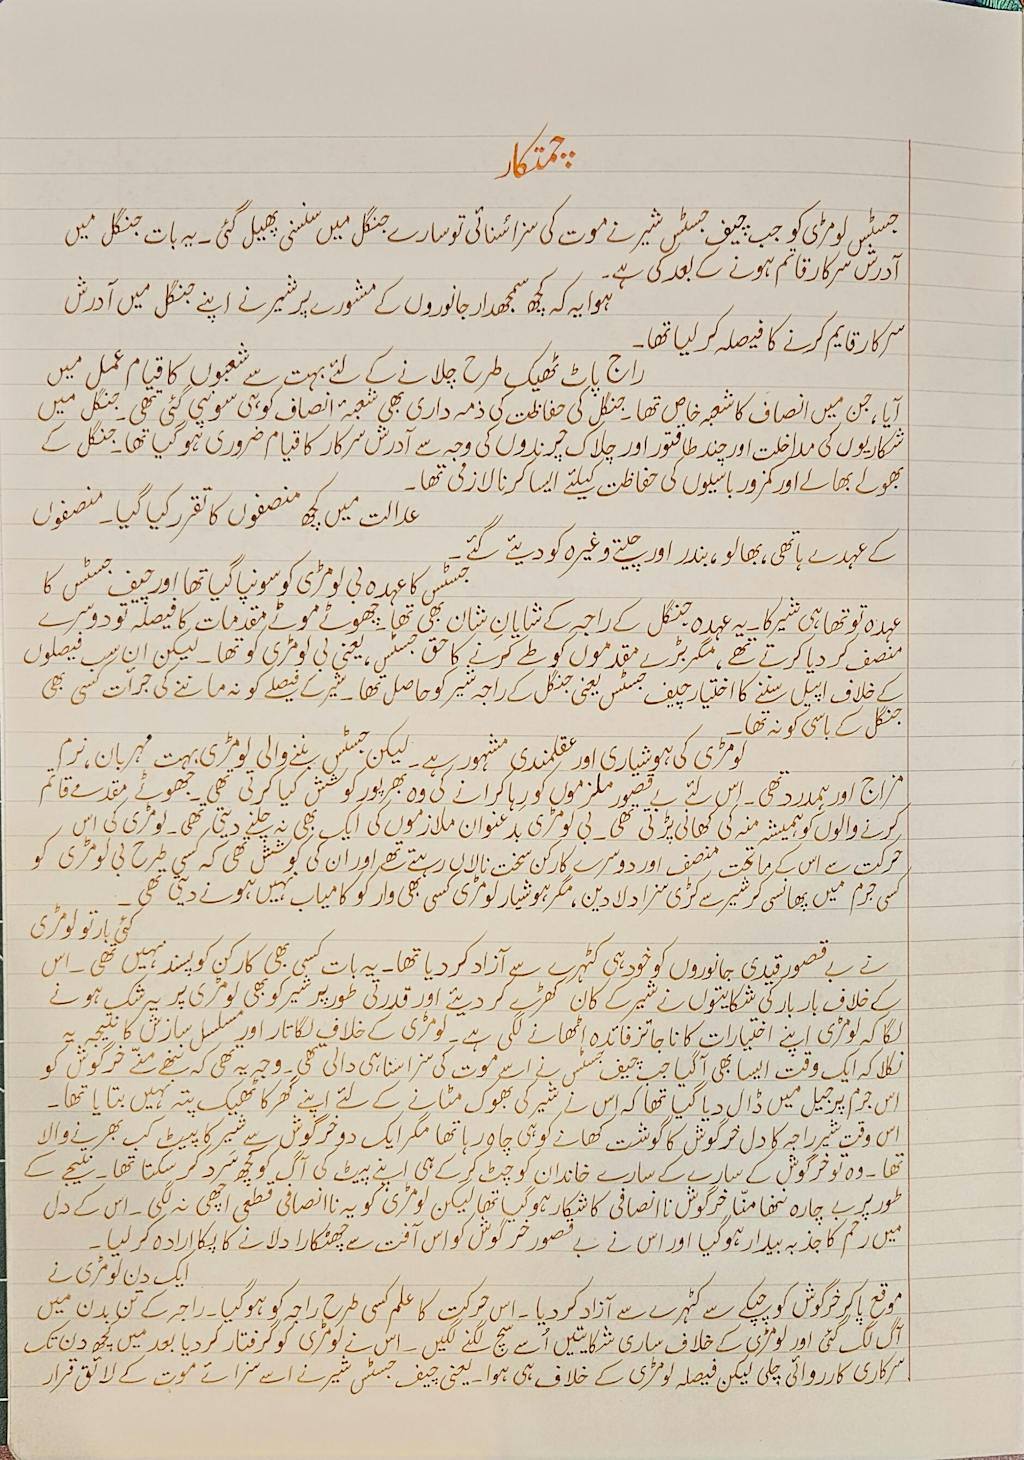 چمتکار
جسٹس لومڑی کو جب چیف جسٹس شیر نے موت کی سزا سنائی تو سارے جنگل میں سنسنی پھیل گئی ۔ یہ بات جنگل میں
آدرش سرکار قائم ہونے کے بعد کی ہے ۔
ہوا یہ کہ کچھ سمجھدار جانوروں کے مشورے پر شیر نے اپنے جنگل میں آدرش
سرکار قایم کرنے کا فیصلہ کر لیا تھا ۔
راج پاٹ ٹھیک طرح چلانے کے لئے بہت سے شعبوں کا قیام عمل میں
آیا ، جن میں انصاف کا شعبہ خاص تھا ۔ جنگل کی حفاظت کی ذمہ داری بھی شعبۂ انصاف کو ہی سونپی گئی تھی ۔ جنگل میں
شکاریوں کی مداخلت اور چند طاقتور اور چالاک چرندوں کی وجہ سے آدرش سرکار کا قیام ضروری ہو گیا تھا ۔ جنگل کے
بھولے بھالے اور کمزور باسیوں کی حفاظت کیلئے ایسا کرنا لازمی تھا ۔
عدالت میں کچھ منصفوں کا تقرر کیا گیا ۔ منصفوں
کے عہدے ہاتھی ، بھالو ، بندر اور چیتے وغیرہ کو دیئے گئے ۔
جسٹس کا عہدہ بی لومڑی کو سونپا گیا تھا اور چیف جسٹس کا
عہدہ تو تھا ہی شیر کا ۔ یہ عہدہ جنگل کے راجہ کے شایانِ شان بھی تھا ۔ چھوٹے موٹے مقدمات کا فیصلہ تو دوسرے
منصف کر دیا کرتے تھے ، مگر بڑے مقدموں کو طے کرنے کا حق جسٹس ، یعنی بی لومڑی کو تھا ۔ لیکن ان سب فیصلوں
کے خلاف اپیل سننے کا اختیار چیف جسٹس یعنی جنگل کے راجہ شیر کو حاصل تھا ۔ شیر کے فیصلے کو نہ ماننے کی جرأت کسی بھی
جنگل کے باسی کو نہ تھا ۔
لومڑی کی ہوشیاری اور عقلمندی مشہور ہے ۔ لیکن جسٹس بننے والی لومڑی بہت مہربان ، نرم
مزاج اور ہمدرد تھی ۔ اس لئے بے قصور ملزموں کو رہا کرانے کی وہ بھرپور کوشش کیا کرتی تھی ۔ جھوٹے مقدمے قائم
کرنے والوں کو ہمیشہ منہ کی کھانی پڑتی تھی ۔ بی لومڑی بدعنوان ملازموں کی ایک بھی نہ چلنے دیتی تھی ۔ لومڑی کی اس
حرکت سے اس کے ماتحت منصف اور دوسرے کارکن سخت نالاں رہتے تھے اور ان کی کوشش تھی کہ کسی طرح بی لومڑی کو
کسی جرم میں پھانسی کر شیر سے کڑی سزا دلا دیں ، مگر ہوشیار لومڑی کسی بھی وار کو کامیاب نہیں ہونے دیتی تھی ۔
کئی بار تو لومڑی
نے بے قصور قیدی جانوروں کو خود ہی کٹہرے سے آزاد کر دیا تھا ۔ یہ بات کسی بھی کارکن کو پسند نہیں تھی ۔ اس
کے خلاف بار بار کی شکایتوں نے شیر کے کان کھڑے کر دیئے اور قدرتی طور پر شیر کو بھی لومڑی پر یہ شک ہونے
لگا کہ لومڑی اپنے اختیارات کا ناجائز فائدہ اٹھانے لگی ہے ۔ لومڑی کے خلاف لگاتار اور مسلسل سازش کا نتیجہ یہ
نکلا کہ ایک وقت ایسا بھی آ گیا جب چیف جسٹس نے اسے موت کی سزا سنا ہی ڈالی تھی ۔ وجہ یہ تھی کہ ننھے منّے خرگوش کو
اس جرم پر جیل میں ڈال دیا گیا تھا کہ اس نے شیر کی بھوک مٹانے کے لئے اپنے گھر کا ٹھیک پتہ نہیں بتایا تھا ۔
اس وقت شیر راجہ کا دل خرگوش کا گوشت کھانے کو ہی چاہ رہا تھا مگر ایک دو خرگوش سے شیر کا پیٹ کب بھرنے والا
تھا ۔ وہ تو خرگوش کے سارے کے سارے خاندان کو چٹ کر کے ہی اپنے پیٹ کی آگ کو کچھ سرد کر سکتا تھا ۔ نتیجے کے
طور پر بے چارہ ننھا منّا خرگوش ناانصافی کا شکار ہو گیا تھا لیکن لومڑی کو یہ ناانصافی قطعی اچھی نہ لگی ۔ اس کے دل
میں رحم کا جذبہ بیدار ہو گیا اور اس نے بے قصور خرگوش کو اس آفت سے چھٹکارا دلانے کا پکا ارادہ کر لیا ۔
ایک دن لومڑی نے
موقع پا کر خرگوش کو چپکے سے کٹہرے سے آزاد کر دیا ۔ اس حرکت کا علم کسی طرح راجہ کو ہو گیا ۔ راجہ کے تن بدن میں
آگ لگ گئی اور لومڑی کے خلاف ساری شکایتیں اُسے سچ لگنے لگیں ۔ اس نے لومڑی کو گرفتار کر دیا بعد میں کچھ دن تک
سرکاری کارروائی چلی لیکن فیصلہ لومڑی کے خلاف ہی ہوا ۔ یعنی چیف جسٹس شیر نے اسے سزائے موت کے لائق قرار